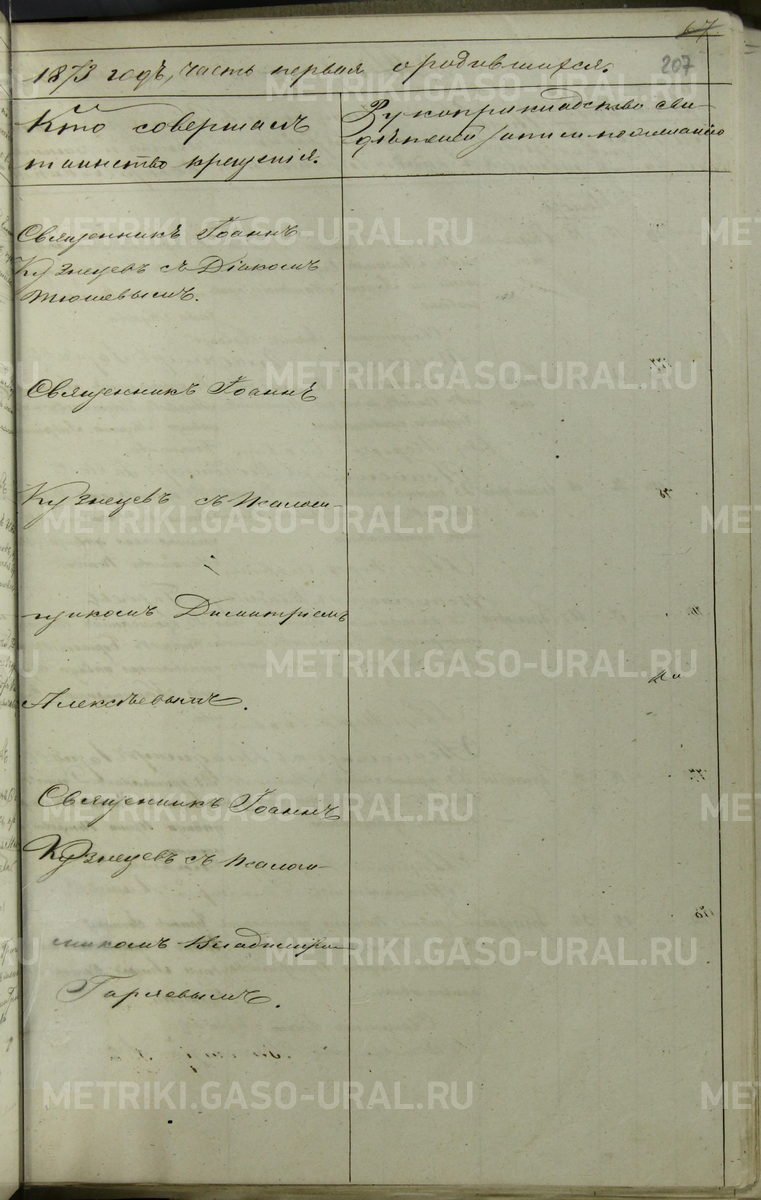 67
207
1873 годъ, часть первая о родившихся.
Кто совершалъ
таинство крещенія.
Рукоприкладство сви-
дѣтелей записи по желанію
Священникъ Іоаннъ
Кузнецевъ съ Діакомъ
Священникъ Іоаннъ
Кузнецевъ съ Псалом-
щикомъ Димитріемъ
Алексѣевымъ.
Священникъ Іоаннъ
Кузнецевъ съ Псалом-
щикомъ Владиміро-
Гаряевымъ.
METRIKI.GASO-URAL.RU